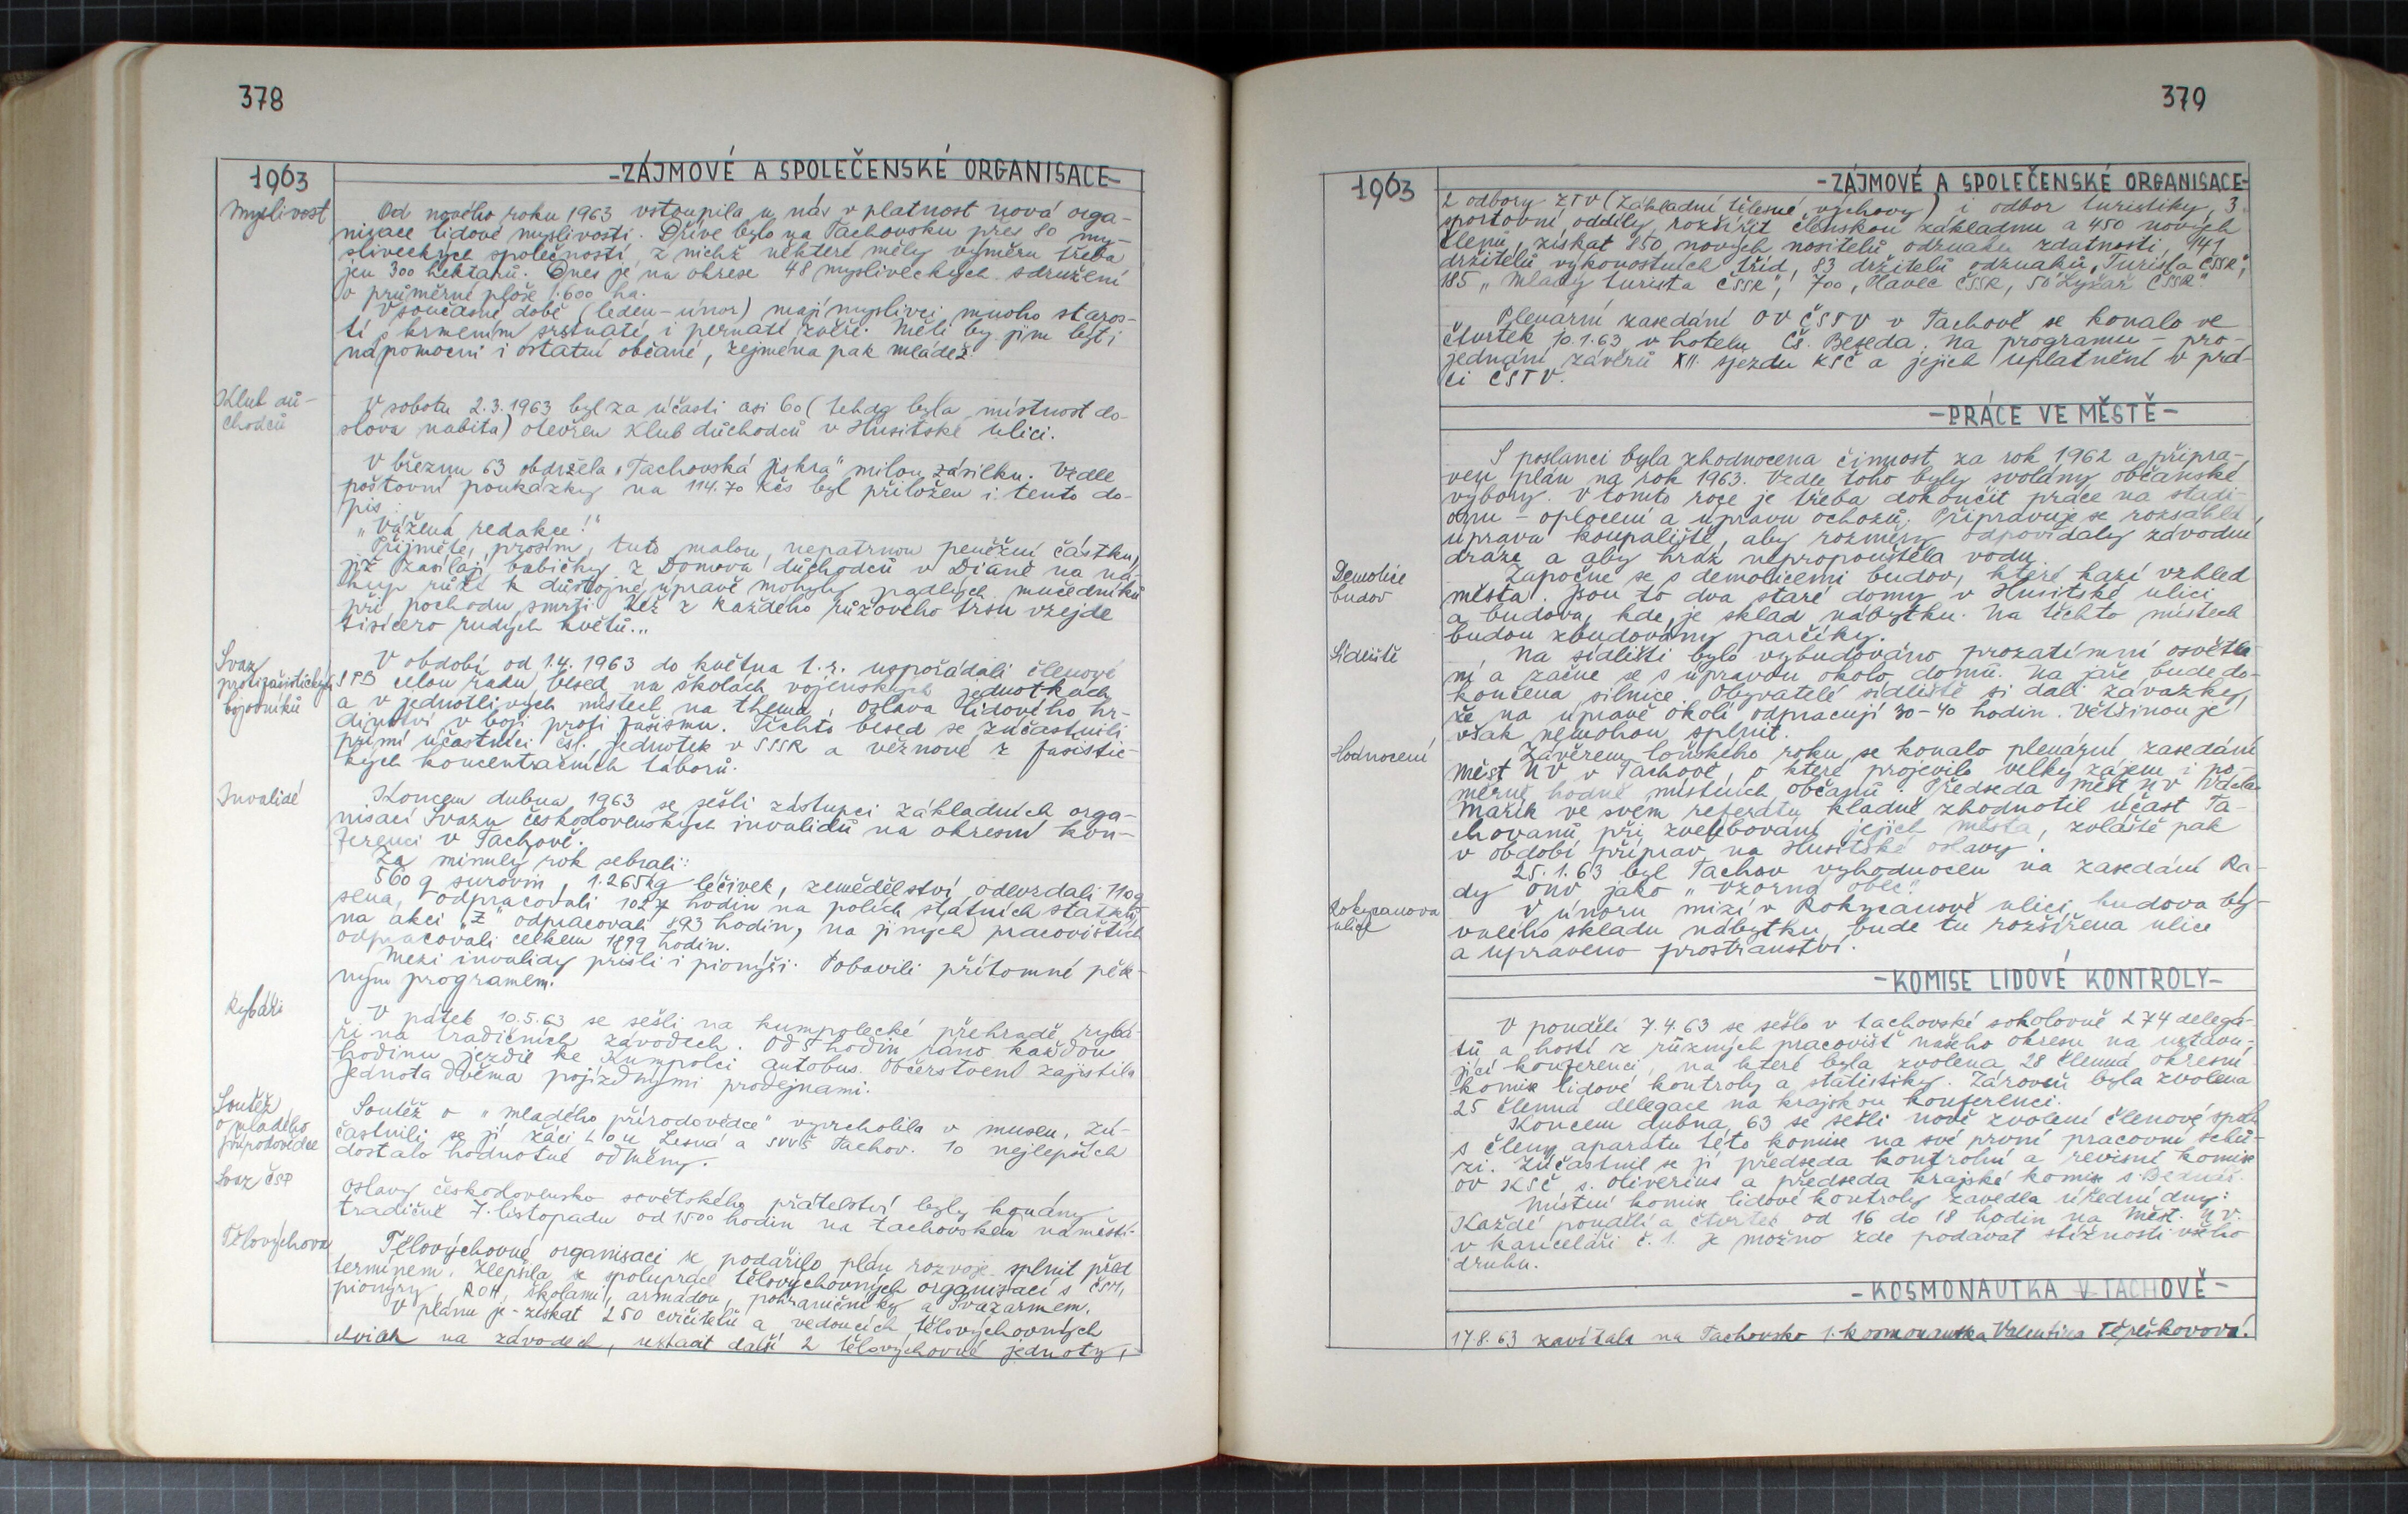 378
1963
-ZÁJMOVÉ A SPOLEČENSKÉ ORGANISACE-
Myslivost
Od nového roku 1963 vstoupila u nás v platnost nová orga-
nisace lidové myslivosti. Dříve bylo na Tachovsku přes 80 my-
sliveckých společností, z nichž některé měly výměru třeba
jen 300 hektarů. Dnes je na okrese 48 mysliveckých sdružení
o průměrné ploše 1.600 ha.
V současné době (leden-únor) mají myslivci mnoho staros-
tí s krmením srstnaté i pernaté zvěře. Měli by jim býti
nápomocni i ostatní občané, zejména pak mládež.
Klub dů-
chodců
V sobotu 2.3.1963 byl za účasti asi 60 (tehdy byla místnost do-
slova nabita) otevřen Klub důchodců v Husitské ulici.
V březnu 63 obdržela „Tachovská jiskra" milou zásilku. Vedle
poštovní poukázky na 114.70 Kčs byl přiložen i tento do-
pis:
„Vážená redakce!"
Přijměte, prosím, tuto malou, nepatrnou peněžní částku,
již zasílají babičky z Domova důchodců v Dianě na ná-
kup růží k důstojné úpravě mohyly padlých mučedníků
při pochodu smrti. Kéž z každého růžového trsu vzejde
tisícero rudých květů...
Svaz
protifašistických
bojovníků
V období od 1.4.1963 do května t.r. uspořádali členové
SPB celou řadu besed na školách vojenských jednotkách
a v jednotlivých místech na thema: Oslava lidového hr-
dinství v boji proti fašismu. Těchto besed se zúčastnili
přímí účastníci čsl. jednotek v SSSR a věznové z fašistic-
kých koncentračních táborů.
Invalidé
Koncem dubna 1963 se sešli zástupci základních orga-
nisací Svazu československých invalidů na okresní kon-
ferenci v Tachově.
Za minulý rok sebrali:
560 q surovin, 1.265kg léčivek, zemědělství odevzdali 110q
sena, odpracovali 1027 hodin na polích státních statků,
na akci „Z" odpracovali 893 hodin, na jiných pracovištích
odpracovali celkem 1899 hodin.
Mezi invalidy přišli i pionýři. Pobavili přítomné pěk-
ným programem.
Rybáři
V pátek 10.5.63 se sešli na kumpolecké přehradě rybá-
ři na tradičních závodech. Od 5 hodin ráno každou
hodinu jezdil ke Kumpolci autobus. Občerstvení zajistila
Jednota dvěma pojízdnými prodejnami.
Soutěž
o mladého
přírodovědce
Soutěž o „mladého přírodovědce" vyvrcholila v museu. Zú-
častnili se jí žáci Lesná a SVVŠ Tachov. 10 nejlepších
dostalo hodnotné odměny.
Svaz ČSP
Oslavy československo sovětského přátelství byly konány
tradičně 7. listopadu od 1500 hodin na tachovském náměstí.
Tělovýchova
Tělovýchovné organisaci se podařilo plán rozvoje splnit před
termínem. Zlepšila se spolupráce tělovýchovných organisací s ČSM,
pionýry, ROH, školami, armádou, pohraničníky a Svazarmem.
V plánu je - získat 250 cvičitelů a vedoucích tělovýchovných
na závodech, ustavit další 2 tělovýchovné jednoty,
379
1963
-ZÁJMOVÉ A SPOLEČENSKÉ ORGANISACE-
2 odbory ZTV (základní tělesné výchovy) i odbor turistiky, 3
sportovní oddíly, rozšířit členskou základnu a 450 nových
členů, získat 850 nových nositelů odznaku zdatnosti, 141
držitelů výkonostních tříd, 83 držitelů odznaků „Turista ČSSR",
185 „Mladý turista ČSSR", 700 „Plavec ČSSR, 50 Lyžař ČSSR."
Plenární zasedání OV ČSTV v Tachově se konalo ve
čtvrtek 10.1.63 v hotelu Čs. Beseda. Na programu - pro-
jednání závěrů XII. sjezdu KSČ a jejich uplatnění v prá-
ci ČSTV.
-PRÁCE VE MĚSTĚ-
S poslanci byla zhodnocena činnost za rok 1962 a připra-
ven plán na rok 1963. Vedle toho byly svolány občanské
výbory. V tomto roce je třeba dokončit práce na stadi-
onu - oplocení a úpravu ochozů. Připravuje se rozsáhlá
úprava koupaliště, aby rozměry odpovídaly závodní
dráze a aby hráz nepropouštěla vodu.
Demolice
budov
Započne se s demolicemi budov, které kazí vzhled
města. Jsou to dva staré domy v Husitské ulici
a budova, kde je sklad nábytku. Na těchto místech
budou zbudovány parčíky.
Sídliště
Na sídlišti bylo vybudováno prozatimní osvětle-
ní a začne se s úpravou okolo domů. Na jaře bude do-
končena silnice. Obyvatelé sídliště si dali závazky,
že na úpravě okolí odpracují 30-40 hodin. Většinou je
však nemohou splnit.
Hodnocení
Závěrem loňského roku se konalo plenární zasedání
Měst NV v Tachově, o které projevilo velký zájem i po-
měrně hodně místních občanů. Předseda Měst NV Václav
Mařík ve svém referátu kladně zhodnotil účast Ta-
chovanů při zvelebování jejich města, zvláště pak
v období příprav na Husitské oslavy.
25.1.63 byl Tachov vyhodnocen na zasedání Ra-
dy ONV jako „Vzorná obec".
Rokycanova
ulice
V únoru mizí v Rokycanově ulici budova bý-
valého skladu nábytku, bude tu rozšířena ulice
a upraveno prostranství.
-KOMISE LIDOVÉ KONTROLY-
V pondělí 7.4.63 se sešlo v tachovské sokolovně 274 delegá-
tů a hostí z různých pracovišť našeho okresu na ustavu-
jící konferenci, na které byla zvolena 28 členná okresní
komise lidové kontroly a statistiky. Zároveň byla zvolena
25 členná delegace na krajskou konferenci.
Koncem dubna 63 se sešli nově zvolení členové spolu
s členy aparátu této komise na své první pracovní schů-
zi. Zúčastnil se jí předseda kontrolní a revisní komise
OV KSČ s. Oliverius a předseda krajské komise s. Bednář.
Místní komise lidové kontroly zavedla úřední dny:
Každé pondělí a čtvrtek od 16 do 18 hodin na Měst. NV.
v kanceláři č. 1. Je možno zde podávat stížnosti všeho
druhu.
-KOSMONAUTKA V TACHOVĚ-
17.8.63 zavítala na Tachovsko 1. kosmonautka Valentina Těreškovová.